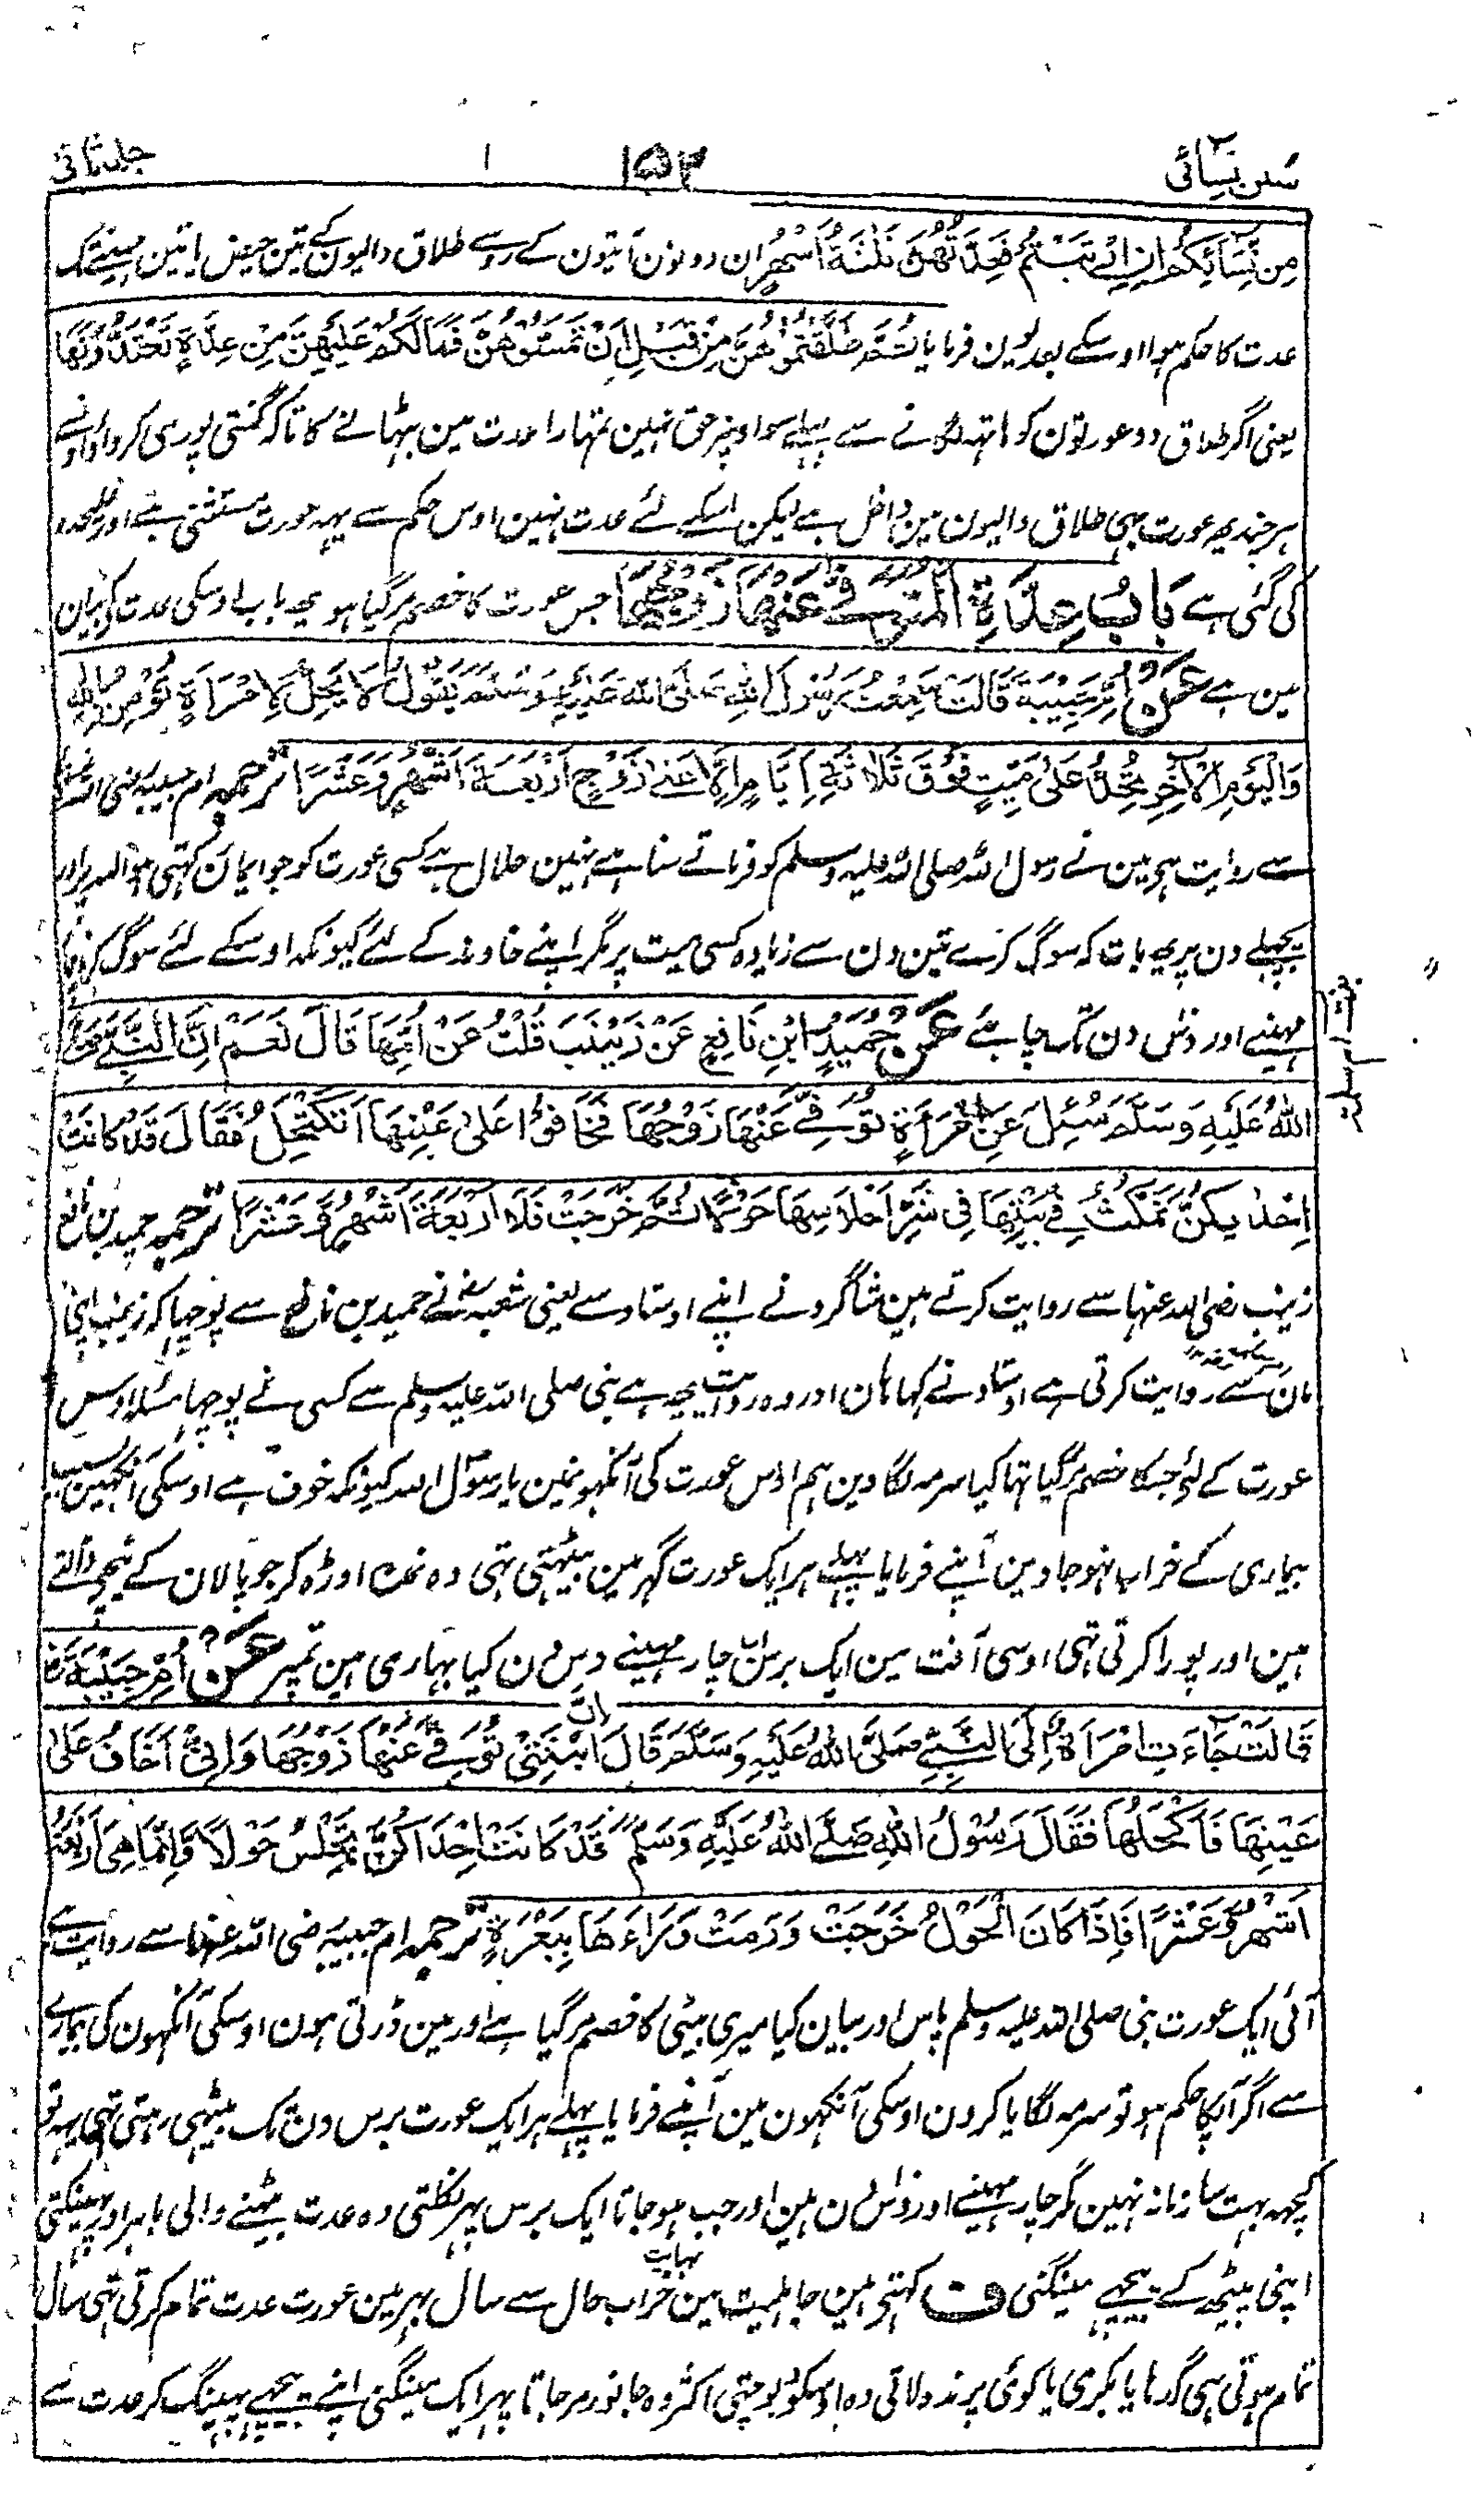 سنن نسائی ۱۵۲ ۱ جلد ثانی
مِن نِّسَائِكُمْ اِنِ ارْتَبْتُمْ فَعِدَّتُهُنَّ ثَلٰثَةُ اَشْهُرٍ ان دونون آیتون کے روسے طلاق والیون کے تین حیض یا تین مہینے تک
عدت کا حکم ہوا اوسکے بعد یون فرمایا ثُمَّ طَلَّقْتُمُوْهُنَّ مِنْ قَبْلِ اَنْ تَمَسُّوْهُنَّ فَمَا لَكُمْ عَلَيْهِنَّ مِنْ عِدَّةٍ تَعْتَدُّوْنَهَا
یعنی اگر طلاق دو عورتون کو ہاتہہ لگانے سے پہلے سو اونپر حق نہین تمہارا عدت مین بہٹانے کا تاکہ گنتی پوری کرواؤ اونسے
ہرچند یہ عورت بہی طلاق والیون مین داخل ہے لیکن اسکے لئے عدت نہین اوس حکم سے یہہ عورت مستثنی ہے اور علیحدہ
کی گئی ہے بَابُ عِدَّةِ الْمُتَوَفّٰی عَنْهَا زَوْجُهَا جس عورت کا خصم مرگیا ہو یہ باب اوسکی عدت کی بیان
مین ہے عَنْ اُمِّ حَبِيْبَةَ قَالَتْ سَمِعْتُ رَسُوْلَ اللّٰهِ صَلَّى اللّٰهُ عَلَيْهِ وَسَلَّمَ يَقُوْلُ لَا يَحِلُّ لِامْرَاَةٍ تُؤْمِنُ بِاللّٰهِ
وَالْيَوْمِ الْاٰخِرِ تُحِدُّ عَلٰى مَيِّتٍ فَوْقَ ثَلَاثَةِ اَيَّامٍ اِلَّا عَلٰى زَوْجٍ اَرْبَعَةَ اَشْهُرٍ وَّعَشْرًا ترجمہ ام حبیبہ رضی اللہ عنہا
سے روایت ہی مین نے رسول اللہ صلی اللہ علیہ وسلم کو فرماتے سنا ہے نہین حلال ہے کسی عورت کو جو ایمان رکہتی ہو اللہ پر اور
پچہلے دن پر یہ بات کہ سوگ کرے تین دن سے زیادہ کسی میت پر مگر اپنے خاوند کے لئے کیونکہ اوسکے لئے سوگ کرنا
مہینے اور دش دن تک چاہئے عَنْ حُمَيْدِ ابْنِ نَافِعٍ عَنْ زَيْنَبَ قُلْتُ عَنْ اُمِّهَا قَالَ نَعَمْ اِنَّ النَّبِيَّ صَلَّى
اللّٰهُ عَلَيْهِ وَسَلَّمَ سُئِلَ عَنِ امْرَاَةٍ تُوُفِّيَ عَنْهَا زَوْجُهَا فَخَافُوْا عَلٰى عَيْنِهَا اَتَكْتَحِلُ فَقَالَ قَدْ كَانَتْ
اِحْدٰىكُنَّ تَمْكُثُ فِيْ بَيْتِهَا فِيْ شَرِّ اَحْلَاسِهَا حَوْلًا ثُمَّ خَرَجَتْ فَلَا اَرْبَعَةَ اَشْهُرٍ وَّعَشْرًا ترجمہ حمید بن نافع
زینب رضی اللہ عنہا سے روایت کرتے ہین شاگرد نے اپنے اوستاد سے یعنی شعبہ نے حمید بن نافع سے پوچہا کہ زینب اپنی
مان سے روایت کرتی ہے اوستاد نے کہا ہان اور وہ روایت یہ ہے نبی صلی اللہ علیہ وسلم سے کسی نے پوچہا مسئلہ اوس
عورت کے لئے جسکا خصم مرگیا تہا کیا سرمہ لگا دین ہم اوس عورت کی آنکہونمین یا رسول اللہ کیونکہ خوف ہے اوسکی آنکہین بسبب
بیماری کے خراب نہوجاوین آپنے فرمایا پہلے ہر ایک عورت گہر مین بیٹہتی تہی وہ نمدہ اوڑہ کر جو پالان کے نیچے ڈالتے
ہین اور پورا کرتی تہی اوسی آفت مین ایک برس اب چار مہینے دس دن کیا بہاری ہین تمپر عَنْ اُمِّ حَبِيْبَةَ
قَالَتْ جَاءَتِ امْرَاَةٌ اِلَى النَّبِيِّ صَلَّى اللّٰهُ عَلَيْهِ وَسَلَّمَ قَالَ اِنَّ ابْنَتِيْ تُوُفِّيَ عَنْهَا زَوْجُهَا وَاِنِّيْ اَخَافُ عَلٰى
عَيْنِهَا فَاَكْحُلُهَا فَقَالَ رَسُوْلُ اللّٰهِ صَلَّى اللّٰهُ عَلَيْهِ وَسَلَّمَ قَدْ كَانَتْ اِحْدَاكُنَّ تَجْلِسُ حَوْلًا فَاِنَّمَا هِيَ اَرْبَعَةُ
اَشْهُرٍ وَّعَشْرًا فَاِذَا كَانَ الْحَوْلُ خَرَجَتْ وَرَمَتْ وَرَاءَهَا بِبَعْرَةٍ ترجمہ ام حبیبہ رضی اللہ عنہا سے روایت ہے
آئی ایک عورت نبی صلی اللہ علیہ وسلم پاس اور بیان کیا میری بیٹی کا خصم مرگیا ہے اور مین ڈرتی ہون اوسکی آنکہون کی بیماری
سے اگر آپکا حکم ہو تو سرمہ لگایا کرون اوسکی آنکہون مین آپنے فرمایا پہلے ہر ایک عورت برس دن تک بیٹہی رہتی تہی یہہ تو
کچہہ بہت سا زمانہ نہین مگر چار مہینے اور دش دن ہین اور جب ہوجاتا ایک برس پہر نکلتی وہ عدت بیٹہنے والی باہر اور پہینکتی
اپنی پیٹھ کے پیچہے مینگنی ف کہتے ہین جاہلیت مین نہایت خراب حال سے سال بہر مین عورت عدت تمام کرتی تہی سال
تمام ہوتی ہی گدہا یا بکری یا کوئی پرند ولاتی وہ اوسکو پوچتی اکثر وہ جانور مرجاتا پہر ایک مینگنی اپنے پیچہے پہینک کر عدت سے